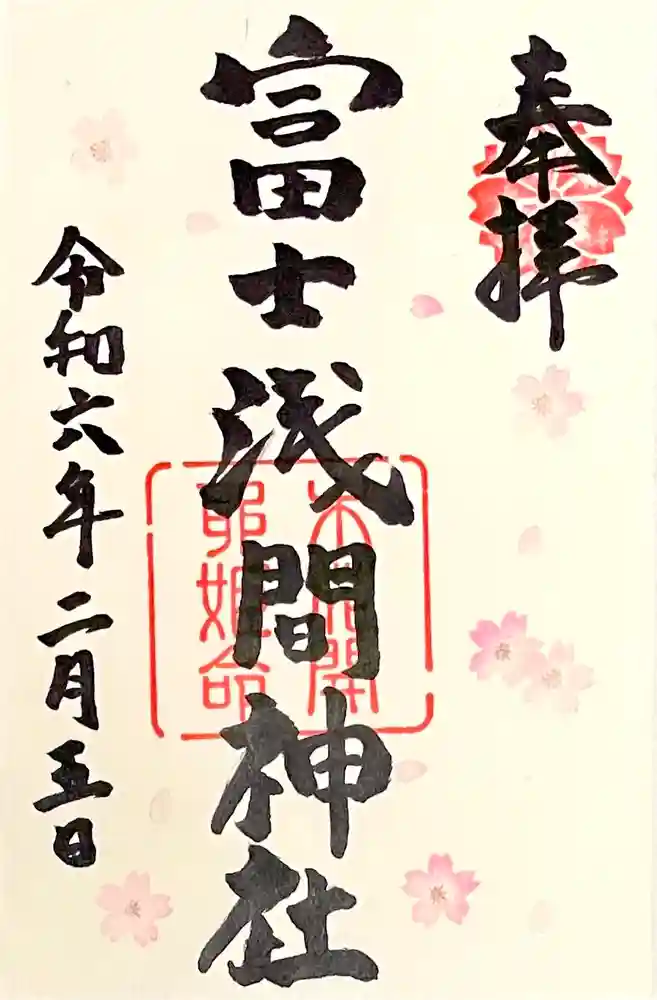 奉拝
富士浅間神社
木花開
耶姫命
令和六年二月五日